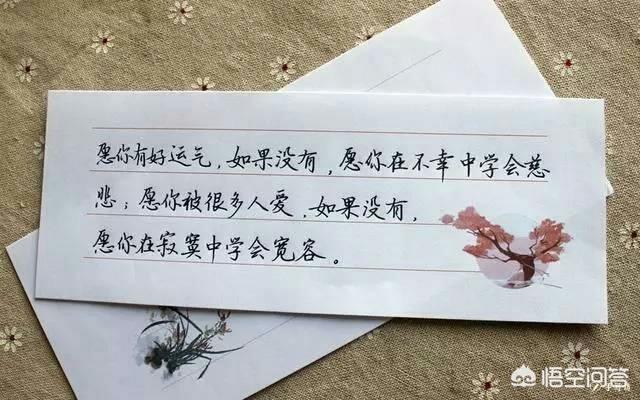 愿你有好运气，如果没有，愿你在不幸中学会慈
悲；愿你被很多人爱，如果没有，
愿你在寂寞中学会宽容。
悟空问答